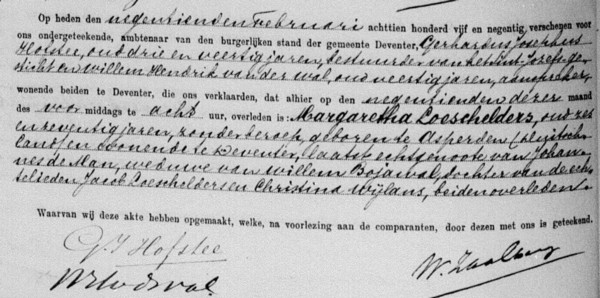 Op heden den negentienden Februari achttien honderd vijf en negentig, verschenen voor
ons ondergeteekende, ambtenaar van den burgerlijken stand der gemeente Deventer, Gerhardus Josephus
Hofstee, oud drie en veertig jaren, bestuurder van het Sint Jozefsge-
sticht en Willem Hendrik van der Wal, oud veertig jaren, aanspreker,
wonende beiden te Deventer, die ons verklaarden, dat alhier op den negentienden dezer maand
des voor middags te acht uur, overleden is: Margaretha Loeschelders, oud zes
en zeventig jaren, zonder beroep, geboren te Asperden (Duitsch-
land) en wonende te Deventer, laatst echtgenoote van Johan-
nes de Man, weduwe van Willem Bojawal, dochter van de ech-
telieden Jacob Loeschelders en Christina Wijlans, beiden overleden.
Waarvan wij deze akte hebben opgemaakt, welke, na voorlezing aan de comparanten, door dezen met ons is geteekend.
G. J. Hofstee
W H v d Wal.